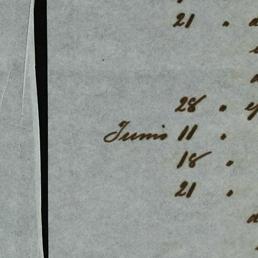 21 "
28 "
Junis 11 "
18 "
21 "